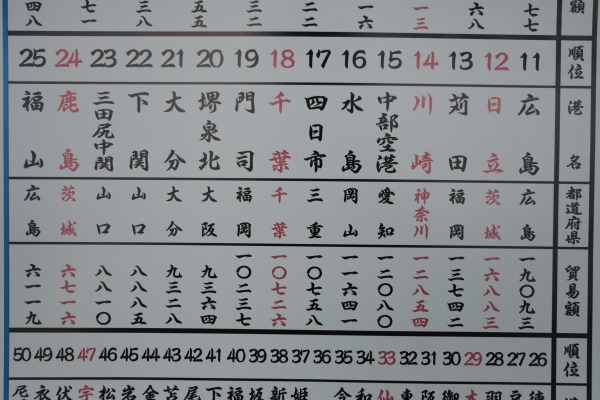 額 七七 六八 一三 一六 二二 三二 五五 三八 七一 四八
順位 11 12 13 14 15 16 17 18 19 20 21 22 23 24 25
港名 広島 日立 苅田 川崎 中部空港 水島 四日市 千葉 門司 堺泉北 大分 下関 三田尻中関 鹿島 福山
都道府県 広島 茨城 福岡 神奈川 愛知 岡山 三重 千葉 福岡 大阪 大分 山口 山口 茨城 広島
貿易額 一九〇九三 一六八八三 一三七四二 一二八五四 一二〇八〇 一一六四一 一〇七五八 一〇七二六 一〇二三七 九三六四 九三二八 八八八五 八八一〇 六七一六 六一一九
順位 26 27 28 29 30 31 32 33 34 35 36 37 38 39 40 41 42 43 44 45 46 47 48 49 50
徳 戸 羽 木 御 阪 東 仙 和 今 姫 新 坂 福 下 尾 苫 金 岩 松 宇 伏 衣 尼